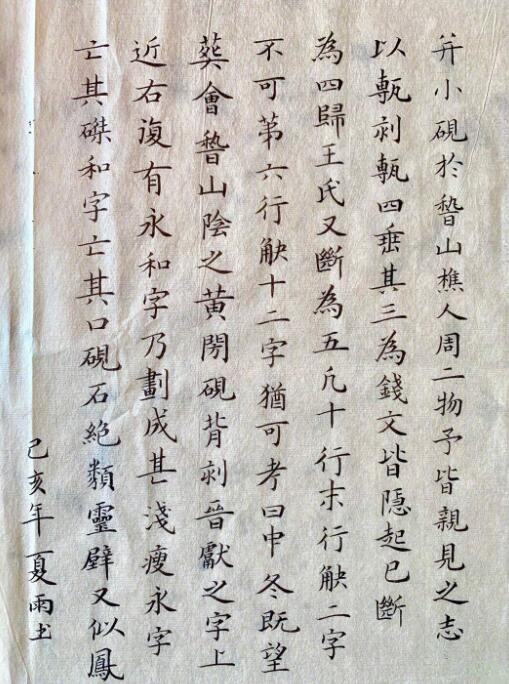 并小硯於稽山樵人周二物予皆親見之志
以甎刻甎四垂其三為錢文皆隱起已斷
為四歸王氏又斷為五凡十行末行觖二字
不可第六行觖十二字猶可考曰中冬既望
葬會稽山陰之黃閍硯背刻晉獻之字上
近右復有永和字乃劃成甚淺瘦永字
亡其磔和字亡其口硯石絶類靈壁又似鳳
己亥年夏雨